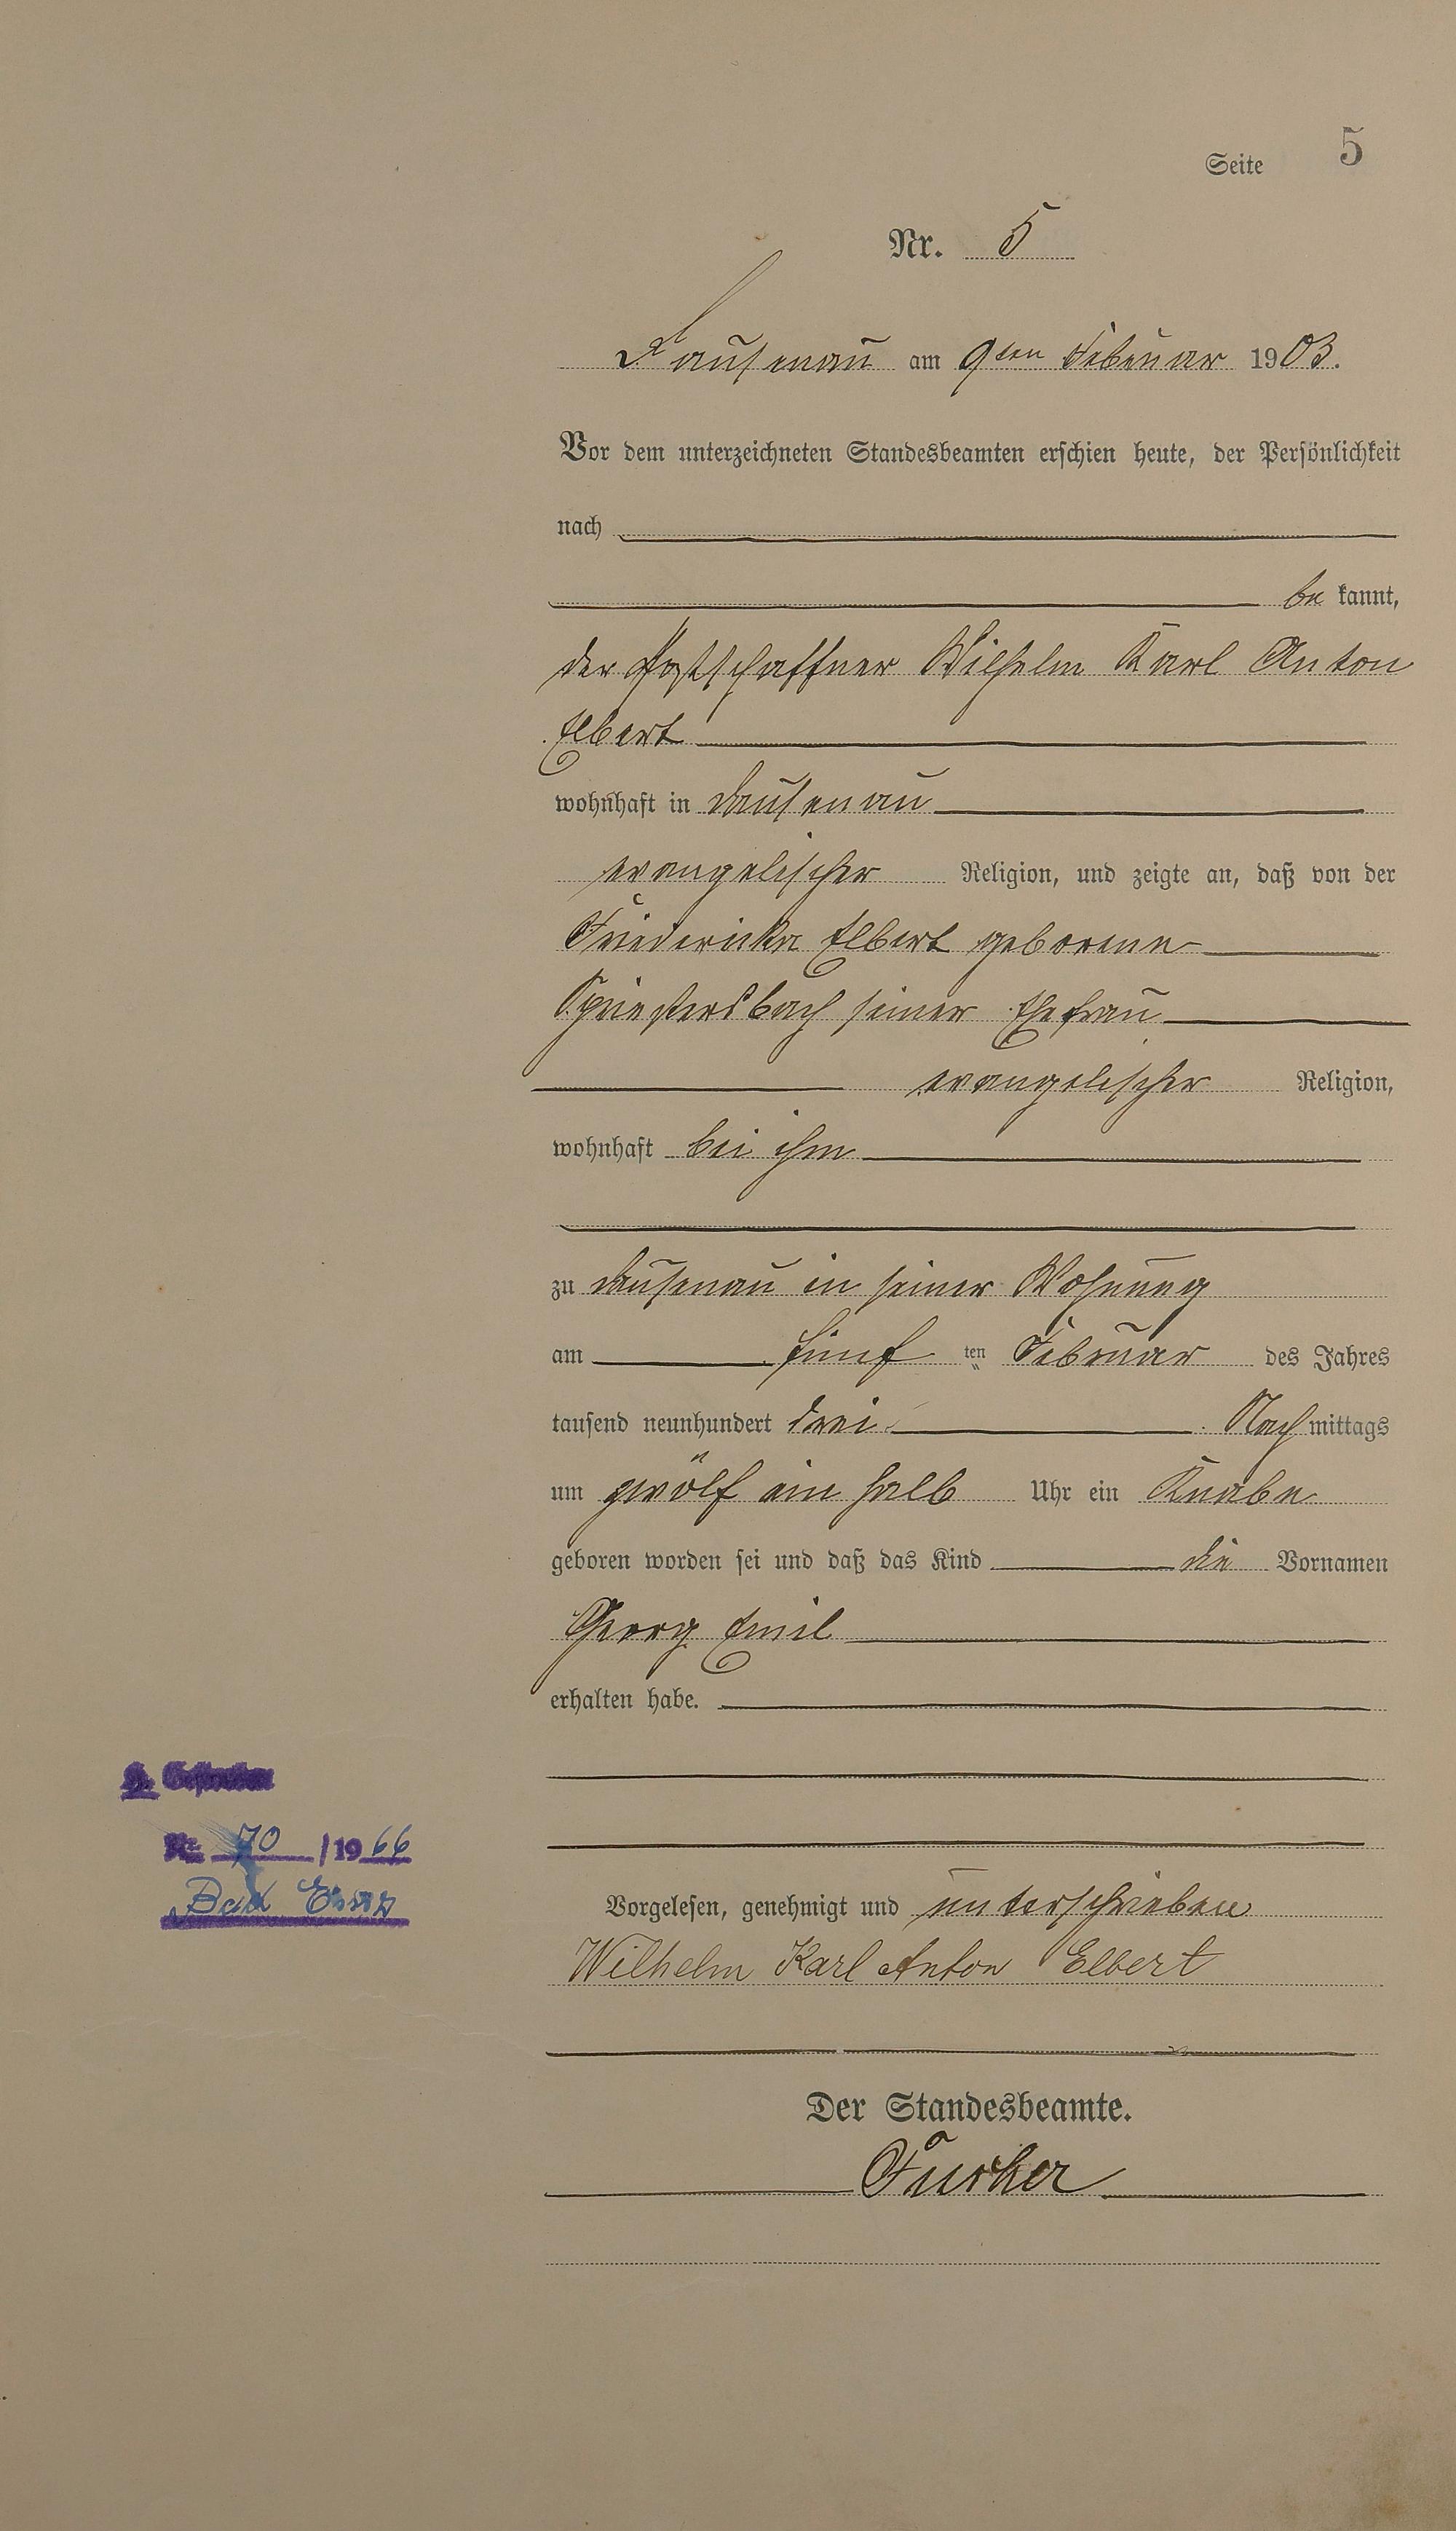 Seite 5
Nr. 5
Dausenau am 9ten Februar 1903.
Vor dem unterzeichneten Standesbeamten erschien heute, der Persönlichkeit
nach
be kannt,
der Postschaffner Wilhelm Karl Anton
Elbert
wohnhaft in Dausenau
evangelischer Religion, und zeigte an, daß von der
Friedericka Elbert geborene
Spriestersbach seiner Ehefrau
evangelischer Religion,
wohnhaft bei ihm
zu Dausenau in seiner Wohnung
am fünf ten Februar des Jahres
tausend neunhundert drei Nach mittags
um zwölf ein halb Uhr ein Knabe
geboren worden sei und daß das Kind die Vornamen
Georg Emil
erhalten habe.
Nr. 70 / 19 66
Bad Ems
Vorgelesen, genehmigt und unterschrieben
Wilhelm Karl Anton Elbert
Der Standesbeamte.